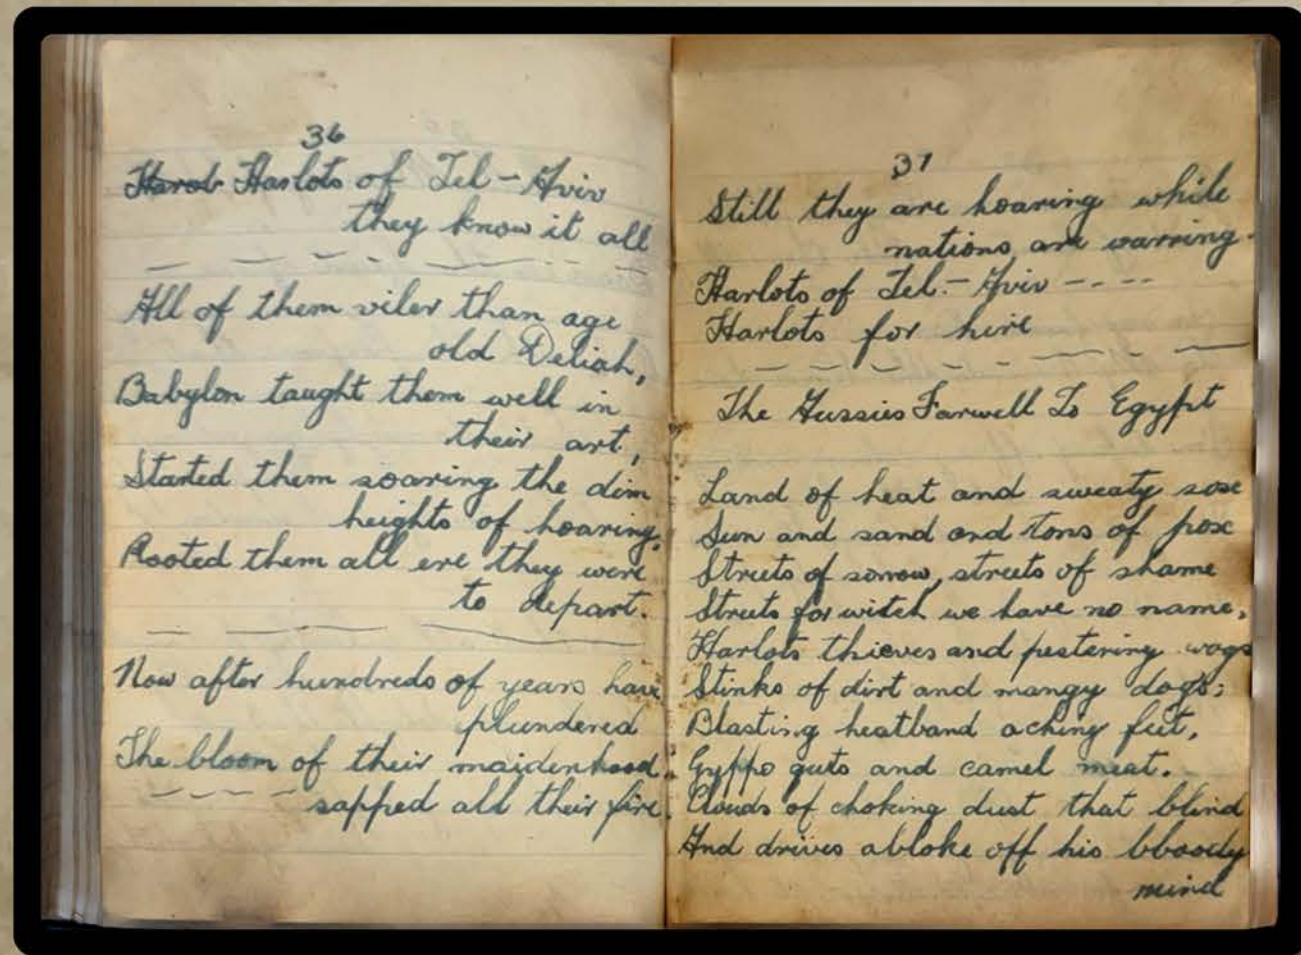 36
Harob Harlots of Tel - Aviv
they know it all
All of them viler than age
old Deliah,
Babylon taught them well in
their art,
Started them soaring the dim
heights of hoaring.
Rooted them all ere they were
to depart.
Now after hundreds of years have
plundered
The bloom of their maidenhood
sapped all their fire.
37
Still they are hoaring while
nations are warring.
Harlots of Tel.- Aviv - - - -
Harlots for hire
The Hussies Farwell To Egypt
Land of heat and sweaty sox
Sun and sand and tons of pox
Streets of sorrow, streets of shame
Streets for witch we have no name,
Harlots thieves and pestering wogs
Stinks of dirt and mangy dogs;
Blasting heatband aching feet,
Gyppo guts and camel meat.
Clouds of choking dust that blind
And drives abloke off his bboody
mind